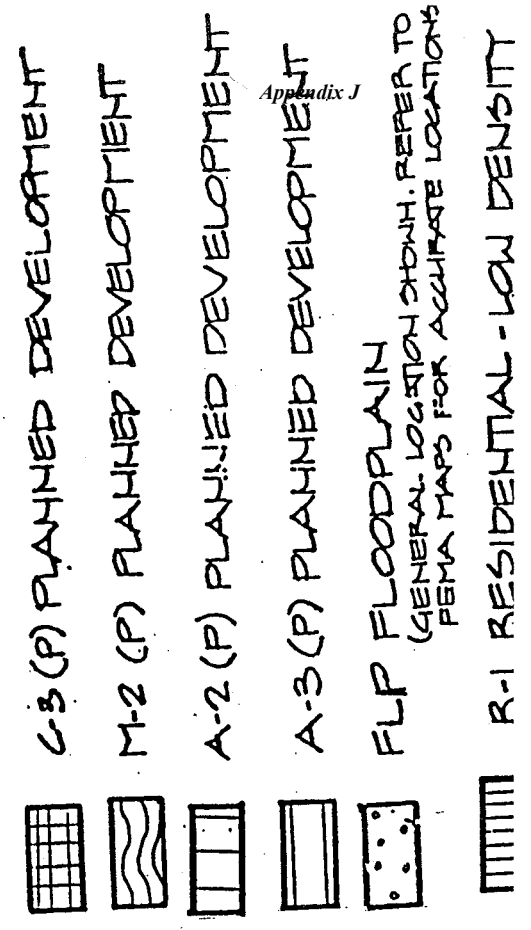 Appendix J
C-3 (P) PLANNED DEVELOPMENT
M-2 (P) PLANNED DEVELOPMENT
A-2 (P) PLANNED DEVELOPMENT
A-3 (P) PLANNED DEVELOPMENT
FLP FLOODPLAIN
(GENERAL LOCATION SHOWN. REFER TO
FEMA MAPS FOR ACCURATE LOCATIONS
R-1 RESIDENTIAL - LOW DENSITY